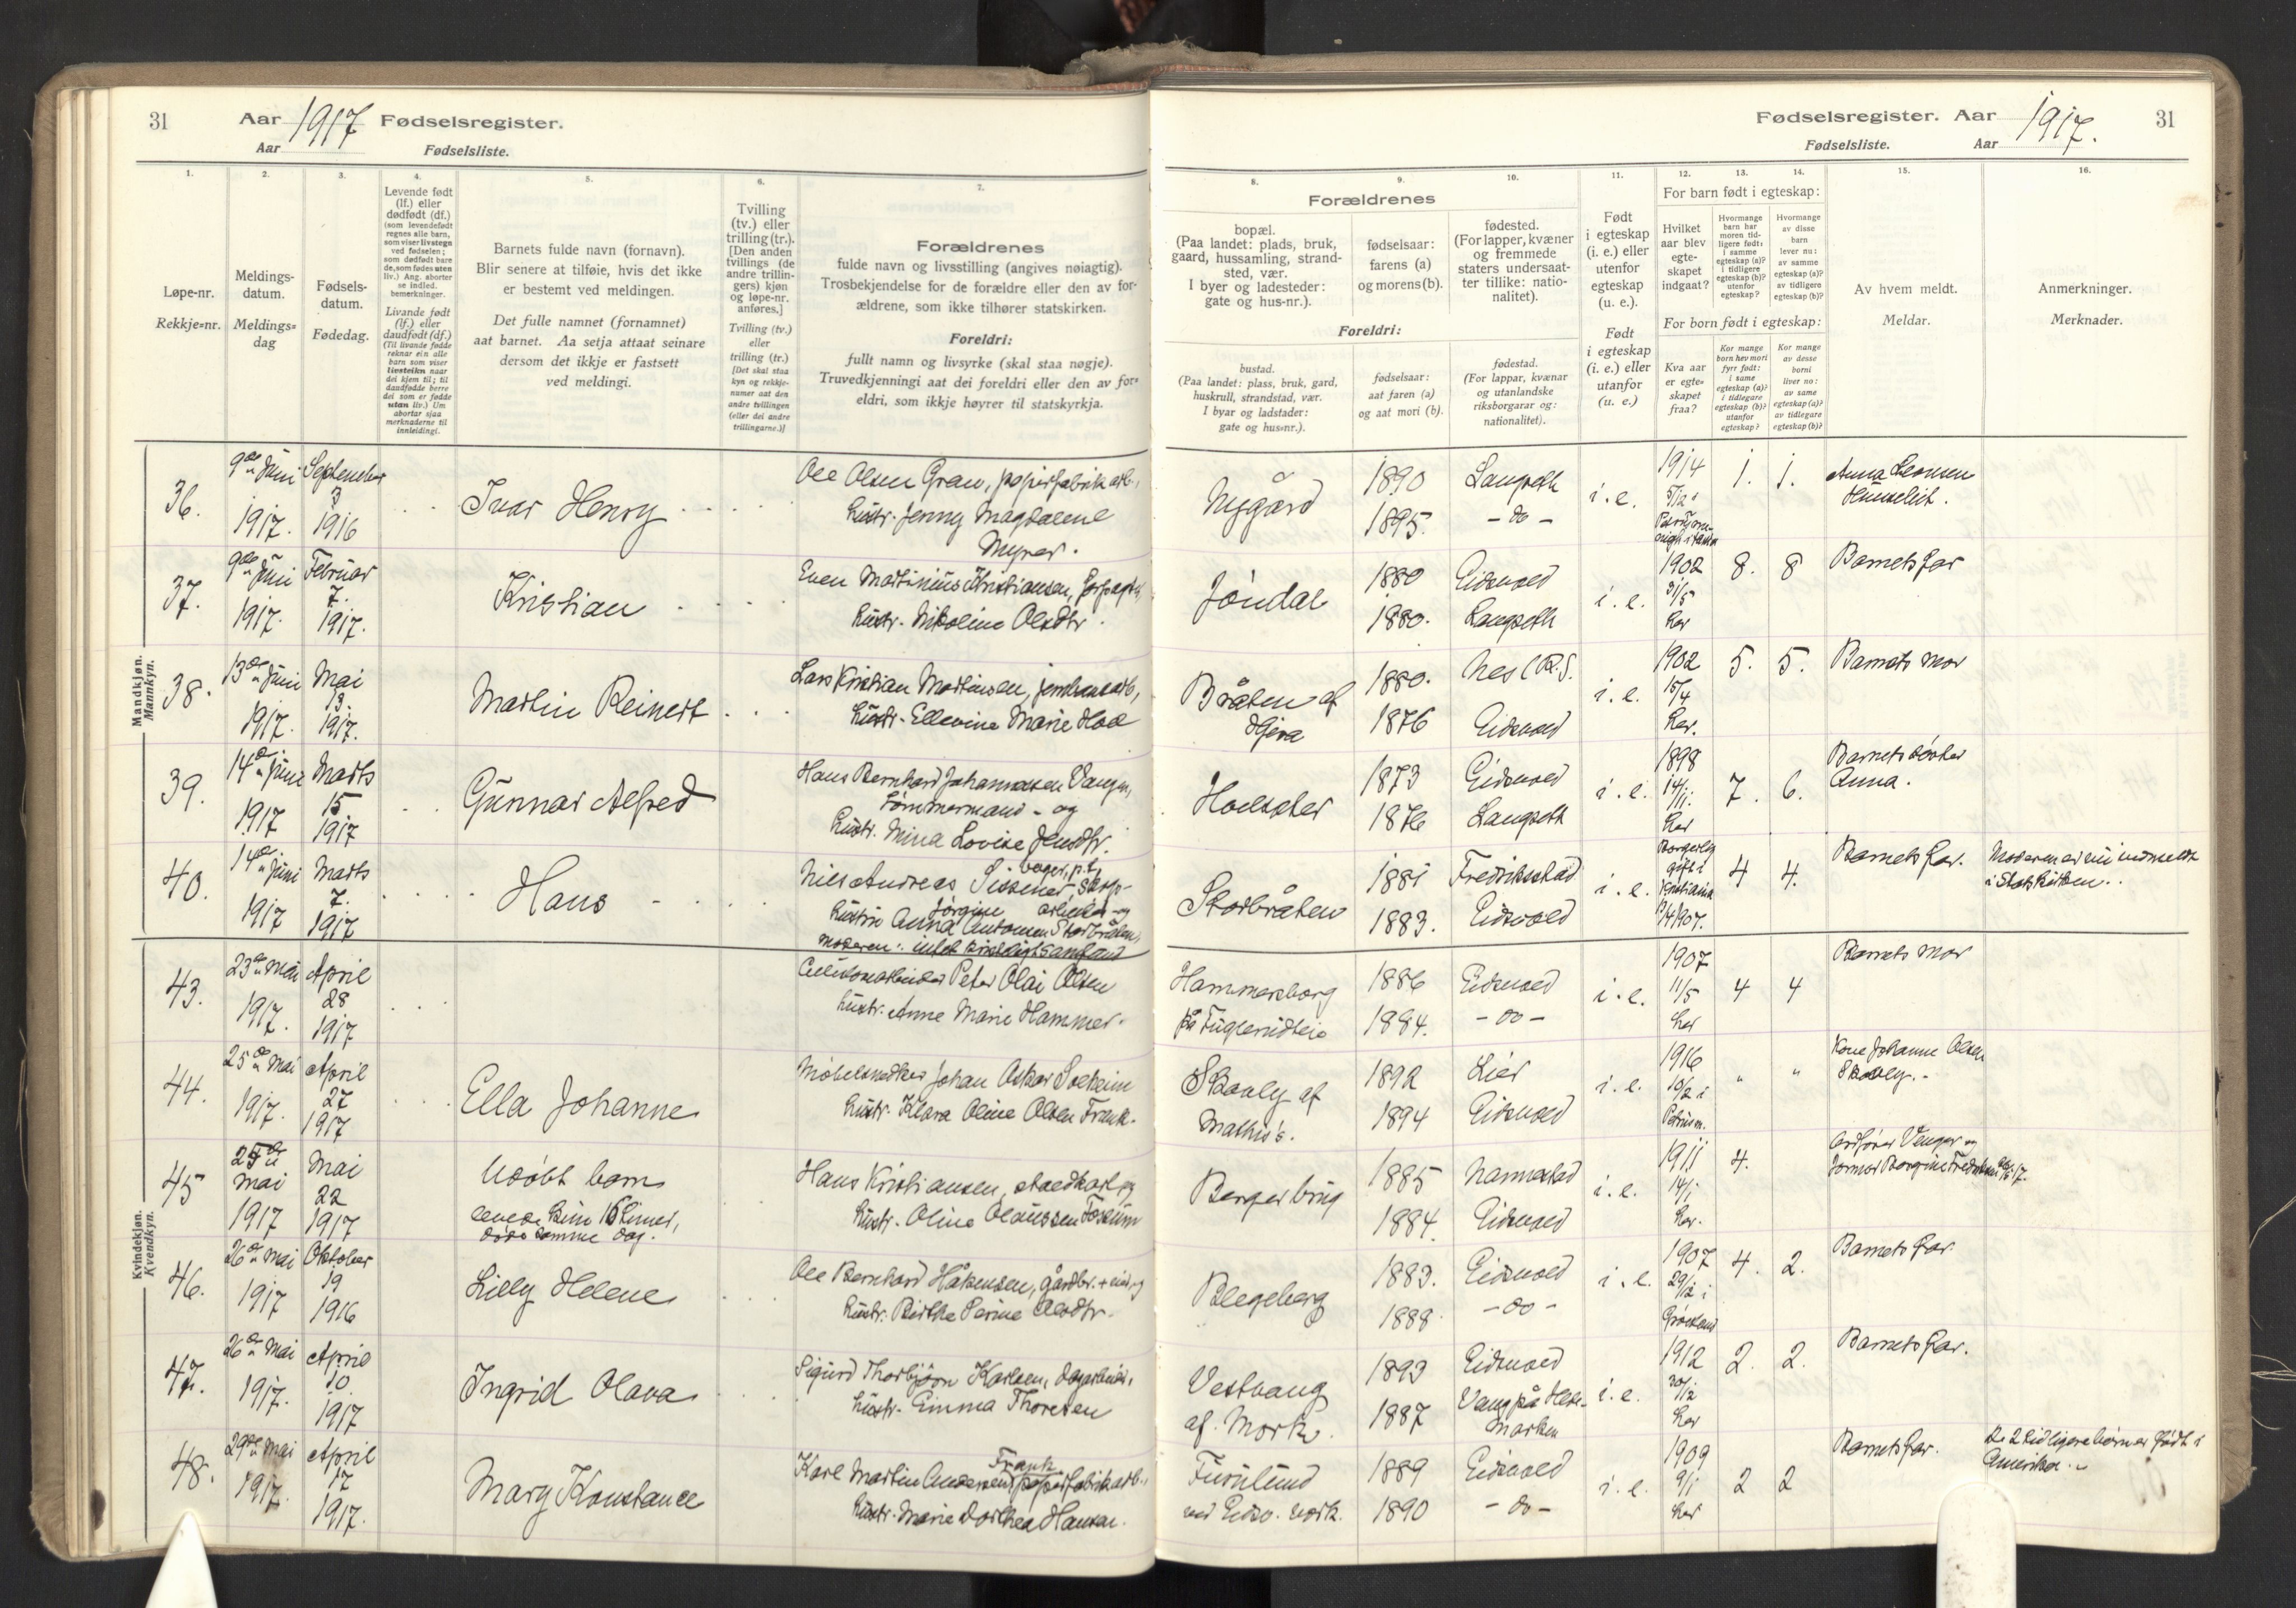 31 Aar 1917 Fødselsregister.
Aar Fødselsliste.
Fødselsregister. Aar 1917. 31
Fødselsliste. Aar
1. 2. 3. 4. 5. 6. 7.
Løpe-nr.
Rekkje=nr.
Meldings-
datum.
Meldings=
dag
Fødsels-
datum.
Fødedag.
Levende født
(lf.) eller
dødfødt (df.)
(som levendefødt
regnes alle barn,
som viser livstegn
ved fødselen;
som dødfødt bare
de, som fødes uten
liv.) Ang. aborter
se indled.
bemerkninger.
Livande født
(lf.) eller
daudfødt (df.)
(Til livande fødde
reknar ein alle
barn som viser
livsteikn naar
dei kjem til; til
daudfødde berre
dei som er fødde
utan liv.) Um
abortar sjaa
merknaderne til
innleidingi.
Barnets fulde navn (fornavn).
Blir senere at tilføie, hvis det ikke
er bestemt ved meldingen.
Det fulle namnet (fornamnet)
aat barnet. Aa setja attaat seinare
dersom det ikkje er fastsett
ved meldingi.
Tvilling
(tv.) eller
trilling (tr.).
[Den anden
tvillings (de
andre trillin-
gers) kjøn
og løpe-nr.
anføres.]
Tvilling (tv.)
eller
trilling (tr.)
[Det skal staa
kyn og rekkje-
numer aat den
andre tvillingen
(eller dei andre
trillingarne.)]
Forældrenes
fulde navn og livsstilling (angives nøiagtig).
Trosbekjendelse for de forældre eller den av for-
ældrene, som ikke tilhører statskirken.
Foreldri:
fullt namn og livsyrke (skal staa nøgje).
Truvedkjenningi aat dei foreldri eller den av for=
eldri, som ikkje høyrer til statskyrkja.
8. 9. 10. 11. 12. 13. 14. 15. 16.
Forældrenes
bopæl.
(Paa landet: plads, bruk,
gaard, hussamling, strand-
sted, vær.
I byer og ladesteder:
gate og hus-nr.).
fødselsaar:
farens (a)
og morens (b).
fødested.
(For lapper, kvæner
og fremmede
staters undersaat-
ter tillike: natio-
nalitet).
Foreldri:
bustad.
(Paa landet: plass, bruk, gard,
huskrull, strandstad, vær.
I byar og ladstader:
gate og hus=nr.).
fødselsaar:
aat faren (a)
og aat mori (b).
fødestad.
(For lappar, kvænar
og utanlandske
riksborgarar og:
nationalitet).
Født
i egteskap
(i. e.) eller
utenfor
egteskap
(u. e.).
Født
i egteskap
(i. e.) eller
utanfor
(u. e.)
For barn født i egteskap:
Hvilket
aar blev
egte-
skapet
indgaat?
Hvormange
barn har
moren tid-
ligere født:
i samme
egteskap (a)?
i tidligere
egteskap (b)?
utenfor
egteskap?
Hvormange
av disse
barn
lever nu:
av samme
egteskap (a)?
av tidligere
egteskap (b)?
For born født i egteskap:
Kva aar
er egte=
skapet
fraa?
Kor mange
born hev mori
fyrr født:
i same
egteskap (a)?
i tidlegare
egteskap (b)?
utanfor
egteskap?
Kor mange
av desse
borni
liver no:
av same
egteskap (a)?
av tidlegare
egteskap (b)?
Av hvem meldt.
Meldar.
Anmerkninger.
Merknader.
Mandkjøn.
Mannkyn.
36. 9de Juni 1917. September 3 1916 Ivar Henry
Ole Olsen Gran, papirfabrikarb.,
hustr. Jenny Magdalene
Myrer.
Nygård 1890 1895. Langseth -do- i. e. 1914 1. 1. Anna Leonsen
37. 9de Juni 1917. Februar 7. 1917. Kristian
Even Martinius Kristiansen,
hustr. Nikoline Olsdtr.
Jøndal 1880 1880. Eidsvold Langseth i. e. 1902 31/5 her 8. 8 Barnets far
38. 13de Juni 1917. Mai 13. 1917. Martin Reinert
Lars Kristian Martinsen, jernbanearb.,
hustr. Ellevine Marie Hol
Bråten af 1880. 1876 Nes (R.). Eidsvold i. e. 1902 15/4 her. 5. 5. Barnets mor
39. 14de Juni 1917 Marts 15 1917 Gunnar Alfred
Hans Bernhard Johannesen Vangen,
tømmermand - og
hustr. Mina Lovise Jensdtr.
Holseter 1873 1876 Eidsvold Langseth i. e. 1898 14/11. her 7. 6. Barnets søster
Anna.
40. 14de Juni 1917 Marts 7. 1917 Hans
Nils Andreas
hustru Anna Jørgine Antonsen Storbråten,
moderen: intet kirkeligt samfund
Storbråten 1881 1883. Fredrikstad Eidsvold i. e. Borgerlig
gift i
Kristiania
1907. 4 4. Barnets far. Moderen er nu indmeldt
i Statskirken.
Kvindekjøn.
Kvendkyn.
43. 23de Mai 1917. April 28 1917
Peter Olai Olsen
hustr. Anne Marie Hammer.
Hammersborg 1886 1884. Eidsvold -do- i. e. 1907 11/5 her 4 4 Barnets mor
44. 25de Mai 1917. April 27 1917 Ella Johanne
Møbelsnedker Johan Oskar Solheim
hustr. Klara Oline Olsen Frank.
Skovly af
Mathis's. 1892 1894 Lier Eidsvold i. e. 1916 10/2 i " " Kone Johanne Olsen
Skovly.
45 25de Mai 1917 Mai 22 1917 Udøbt barn
levede kun 16 timer,
døde samme dag.
Hans Kristiansen, staldkarl og
hustr. Oline Olaussen Fossum
Berger brug 1885 1884. Nannestad Eidsvold i. e. 1911 14/1 her. 4.
46. 26de Mai 1917 Oktober 19 1916 Lilly Helene
Ole Bernhard Håkensen, gårdbr.
hustr. Birthe Perine Olsdtr.
Blegeberg 1883. 1888 Eidsvold -do- i. e. 1907 29/12 i 4. 2. Barnets far
47. 26de Mai 1917. April 10. 1917 Ingrid Olava
Sigurd Thorbjørn Karlsen, dagarbeider,
hustr. Emma Thoresen
Vestvang
af Mork. 1893 1887 Eidsvold Vang på Hede-
marken i. e. 1912 30/12 her 2. 2. Barnets far.
48. 29de Mai 1917. April 17 1917. Mary Konstance
Karl Martin Andersen Frank papirfabrikarb.,
hustr. Marie Dorthea Hansen.
Furulund
ved Eidsv. værk. 1889 1890 Eidsvold -do- i. e. 1909 9/1 her 2 2 Barnets far. De 2 tidligere børn er født i
Amerika.